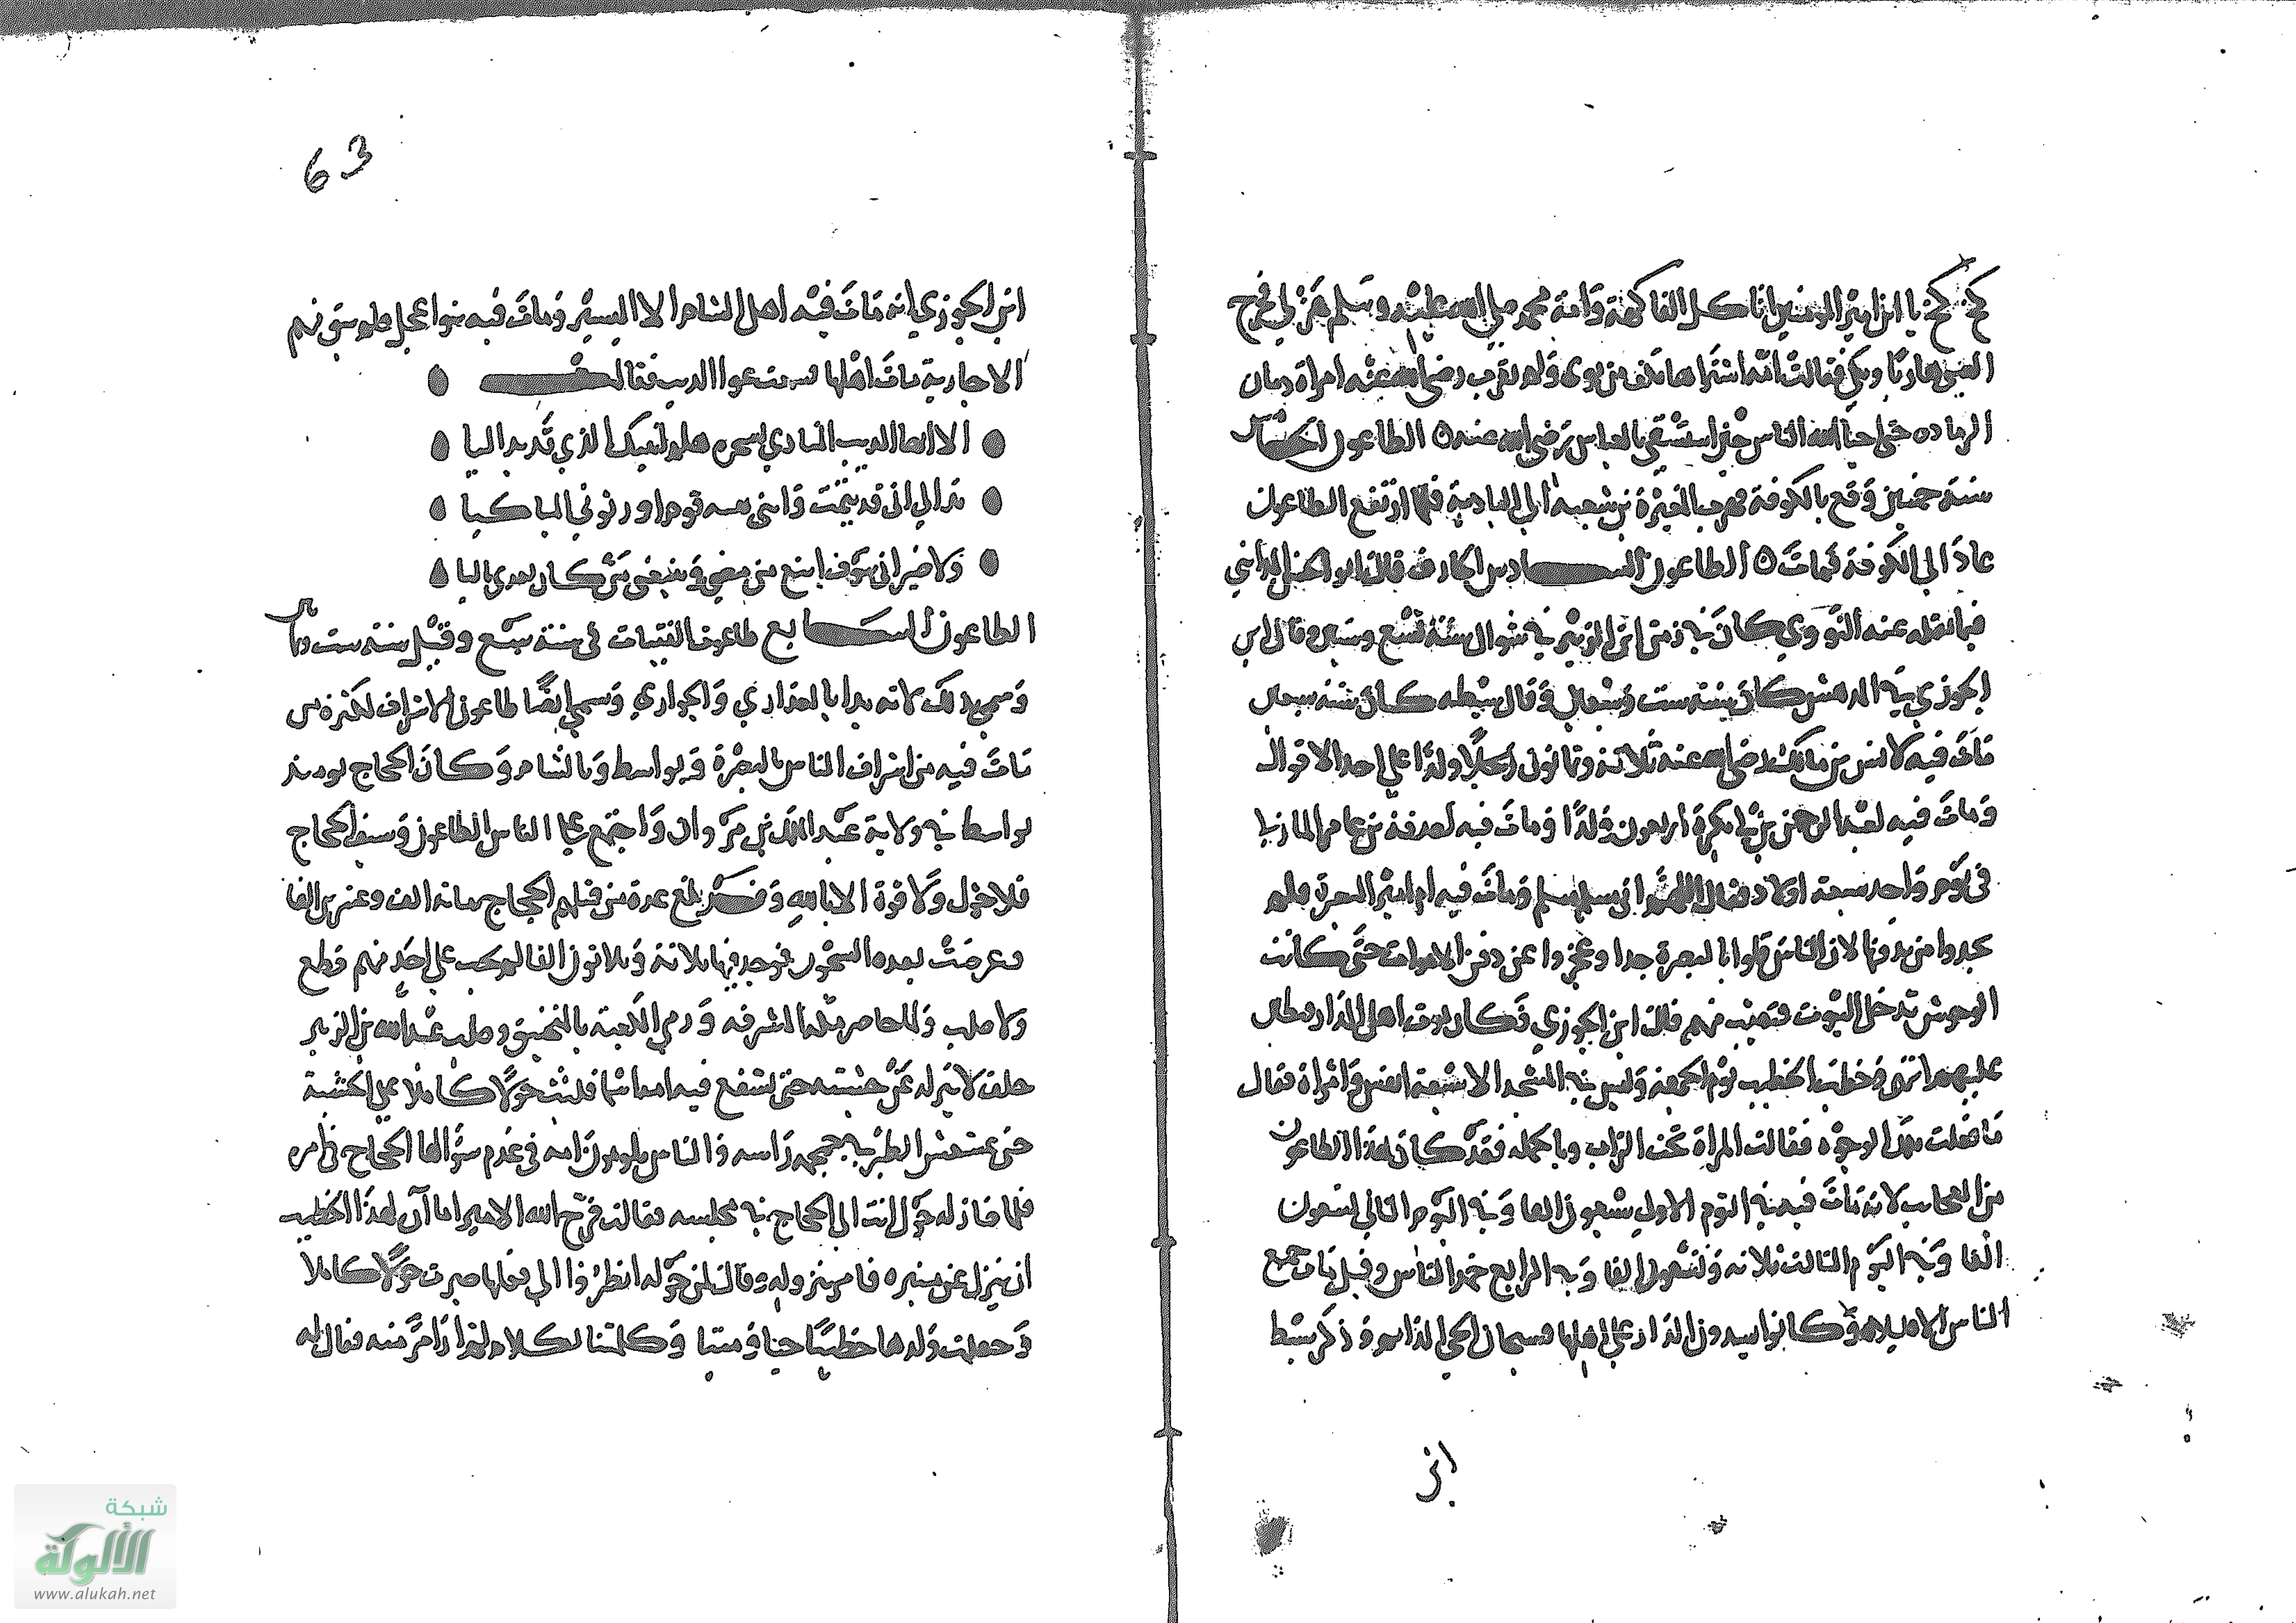 كخ كخ يا ابن امير المومنين اتاكل الفاكهة وامة محمد صلى الله عليه وسلم هزلى فخرج
الصبي هاربا وبكى فقالت انه اشتراها بكف من نوى ولم يقرب رضي الله عنه امراة زمان
الرماده حتى احيا الله الناس حين استسقى بالعباس رضي الله عنه ٥ الطاعون الخامس
سنة خمسين وقع بالكوفة فهرب المغيرة بن شعبة الى البادية فلما ارتفع الطاعون
عاد الى الكوفة فمات ٥ الطاعون السادس الجارف قال ابو الحسن المدايني
فيما نقله عنه النووي كان في زمن ابن الزبير في شوال سنة تسع وستين وقال ابن
الجوزي في المدهش كان سنة ست وستين وقال سبطه كان سنة سبعين
مات فيه لانس بن مالك رضي الله عنه ثلاثة وثمانون رجلا ولدا على احد الاقوال
ومات فيه لعبد الرحمن بن ابي بكرة اربعون ولدا ومات فيه لصدقة بن عامر المازني
في يوم واحد سبعة اولاد فقال اللهم اني مسلم مسلم ومات فيه ام امير البصرة فلم
يجدوا من يدفنها لان الناس قلوا بالبصرة جدا وعجزوا عن دفن الاموات حتى كانت
الوحوش تدخل البيوت فتصيب منهم قال ابن الجوزي فكان يموت اهل الدار فيطين
عليهم الباب وخطب الخطيب يوم الجمعة وليس في المسجد الا سبعة انفس وامراة فقال
ما فعلت تلك الوجوه فقالت المراة تحت التراب وبالجملة فقد كان هذا الطاعون
من العجائب لانه مات فيه في اليوم الاول سبعون الفا وفي اليوم الثاني سبعون
الفا وفي اليوم الثالث ثلاثه وسبعون الفا وفي الرابع خمد الناس وقيل مات جميع
الناس الا قليلا وكانوا يسدون الدار على اهلها فسبحان الحي الدايم وذكر سبط
ابن
63
ابن الجوزي انه مات فيه اهل الشام الا اليسير ومات فيه بنوا عجل فلم يبق منهم
الا جارية مات اهلها فسمعت عوا الذيب فقالت
الا ايها الذيب المنادي بسحره هلم انبيك الذي قد بدا ليا
بدا لي اني قد يتمت وانني بقية قوم اورثوني المباكيا
ولا ضير اني سوف اتبع من مضى ويتبعني من كان بعدي تاليا
الطاعون السابع طاعون الفتيات في سنة سبع وقيل سنة ست وثمانين
وسمي بذلك لانه بدا بالعذارى والجواري وسمي ايضا طاعون الاشراف لكثرة من
مات فيه من اشراف الناس بالبصرة وبواسط وبالشام وكان الحجاج يومئذ
بواسط في ولاية عبد الملك بن مروان واجتمع على الناس الطاعون وسيف الحجاج
فلا حول ولا قوة الا بالله وقد بلغ عدة من قتلهم الحجاج مائة الف وعشرين الفا
وعرضت بعده السجون فوجد فيها ثلاثة وثلاثون الفا لم يجب على احد منهم قطع
ولا صلب ولما حاصر مكة المشرفه ورمى الكعبة بالمنجنيق وصلب عبد الله بن الزبير
حلف لا ينزله عن خشبته حتى تشفع فيه امه اسما فلبث حولا كاملا على الخشبة
حتى عشعش الطير في جمجمة راسه والناس يلومون امه في عدم سؤالها الحجاج في امره
فلما فات له حول اتت الى الحجاج في مجلسه فقالت فرج الله الامير اما آن لهذا الخطيب
ان ينزل عن منبره فامر بنزوله وقال لمن حوله انظروا الى فعلها صبرت حولا كاملا
وجعلت ولدها خطيبا حيا وميتا وكلمتنا بكلام لهذا امر منه فقال له
شبكة
الألوكة
www.alukah.net